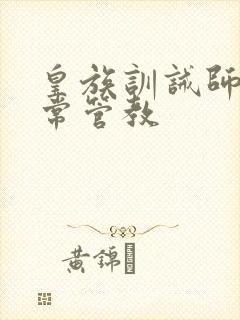 皇族訓誡師
常管教
黃錦